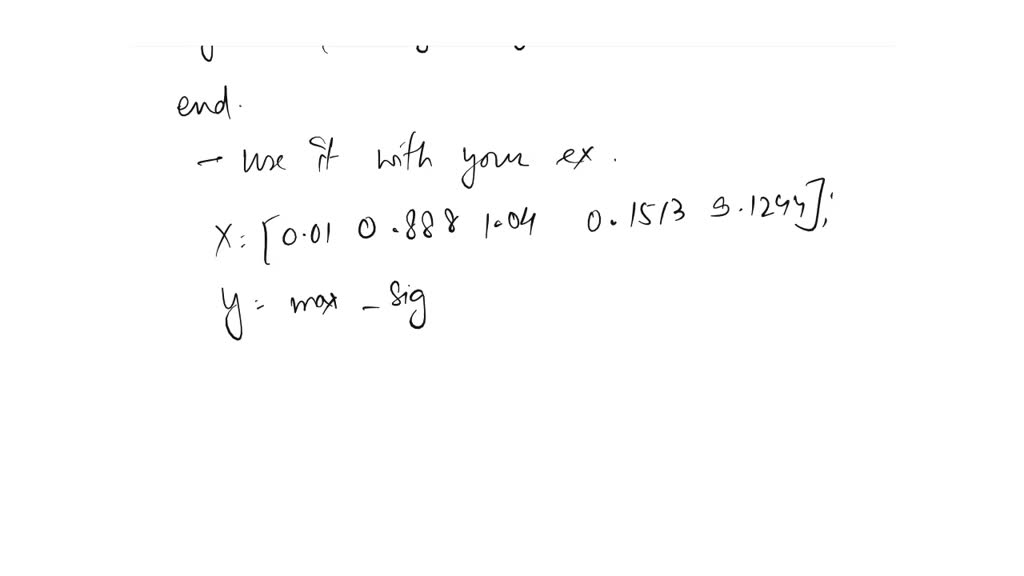 end.
→ use it with your ex.
X = [0.01 0.888 1.04 0.1513 9.1244];
y = max_sig